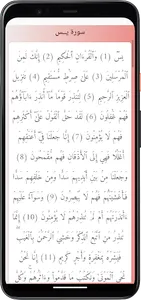 سورة يــس
يسٓ (1) وَٱلْقُرْءَانِ ٱلْحَكِيمِ (2) إِنَّكَ لَمِنَ
ٱلْمُرْسَلِينَ (3) عَلَىٰ صِرَٰطٍ مُّسْتَقِيمٍ (4) تَنزِيلَ
ٱلْعَزِيزِ ٱلرَّحِيمِ (5) لِتُنذِرَ قَوْمًا مَّآ أُنذِرَ ءَابَآؤُهُمْ
فَهُمْ غَٰفِلُونَ (6) لَقَدْ حَقَّ ٱلْقَوْلُ عَلَىٰٓ أَكْثَرِهِمْ
فَهُمْ لَا يُؤْمِنُونَ (7) إِنَّا جَعَلْنَا فِىٓ أَعْنَٰقِهِمْ
أَغْلَٰلًا فَهِىَ إِلَى ٱلْأَذْقَانِ فَهُم مُّقْمَحُونَ (8)
وَجَعَلْنَا مِنۢ بَيْنِ أَيْدِيهِمْ سَدًّا وَمِنْ خَلْفِهِمْ سَدًّا
فَأَغْشَيْنَٰهُمْ فَهُمْ لَا يُبْصِرُونَ (9) وَسَوَآءٌ عَلَيْهِمْ
ءَأَنذَرْتَهُمْ أَمْ لَمْ تُنذِرْهُمْ لَا يُؤْمِنُونَ (10) إِنَّمَا
تُنذِرُ مَنِ ٱتَّبَعَ ٱلذِّكْرَ وَخَشِىَ ٱلرَّحْمَٰنَ بِٱلْغَيْبِ
فَبَشِّرْهُ بِمَغْفِرَةٍ وَأَجْرٍ كَرِيمٍ (11) إِنَّا نَحْنُ
نُحْىِ ٱلْمَوْتَىٰ وَنَكْتُبُ مَا قَدَّمُوا۟ وَءَاثَٰرَهُمْ وَكُلَّ